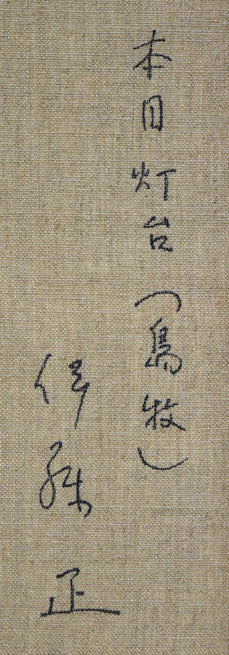 本目灯台（島牧）
伊藤 正